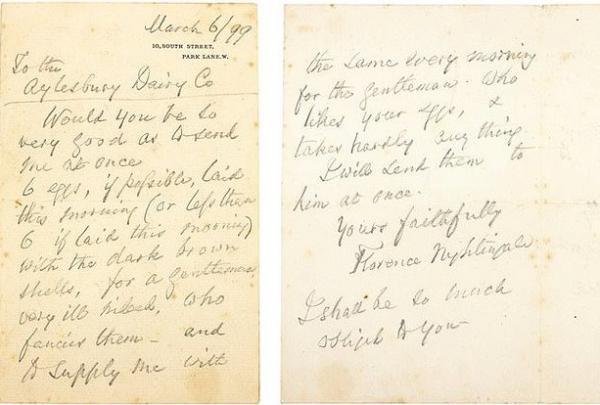 March 6/99
10, SOUTH STREET,
PARK LANE. W.
To the
Aylesbury Dairy Co
Would you be so
very good as to send
me at once
6 eggs, if possible, laid
this morning (or less than
6 if laid this morning)
with the dark brown
shells, for a gentleman
very ill indeed, who
fancies them – and
to supply me with
the same every morning
for the gentleman. Who
likes your eggs, &
takes hardly anything
I will send them to
him at once.
Yours faithfully
Florence Nightingale
I shall be so much
obliged to you